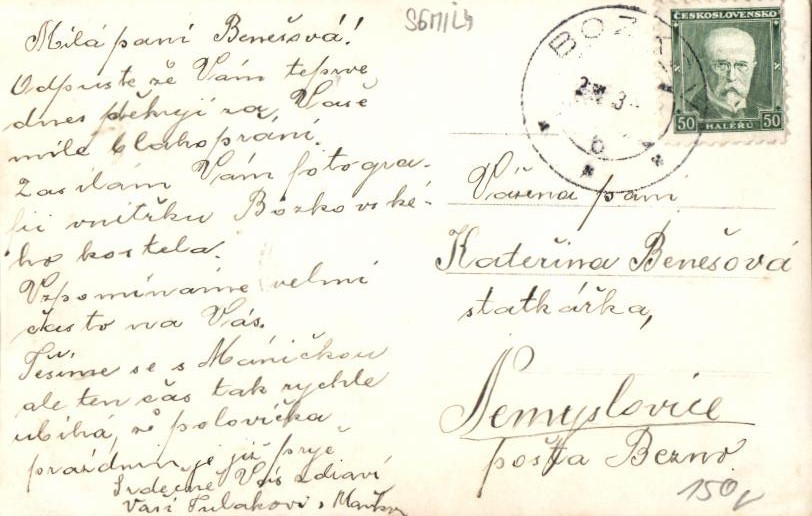 Milá paní Benešová!
Odpusťte že Vám teprve
dnes děkuji za Vaše
milé blahopřání.
Zasílám Vám fotogra-
fii vnitřku Bozkovské-
ho kostela.
Vzpomínáme velmi
často na Vás.
Těšíme se s Máničkou
ale ten čas tak rychle
ubíhá, že polovička
prazdnin je již pryč
Srdečně Vás zdraví
Vaši Tulákovi
SEMILY
BOZKOV
ČESKOSLOVENSKO
50 HALÉŘŮ 50
Vážená paní
Kateřina Benešová
statkářka,
Nemyslovice
pošta Bezno
150,